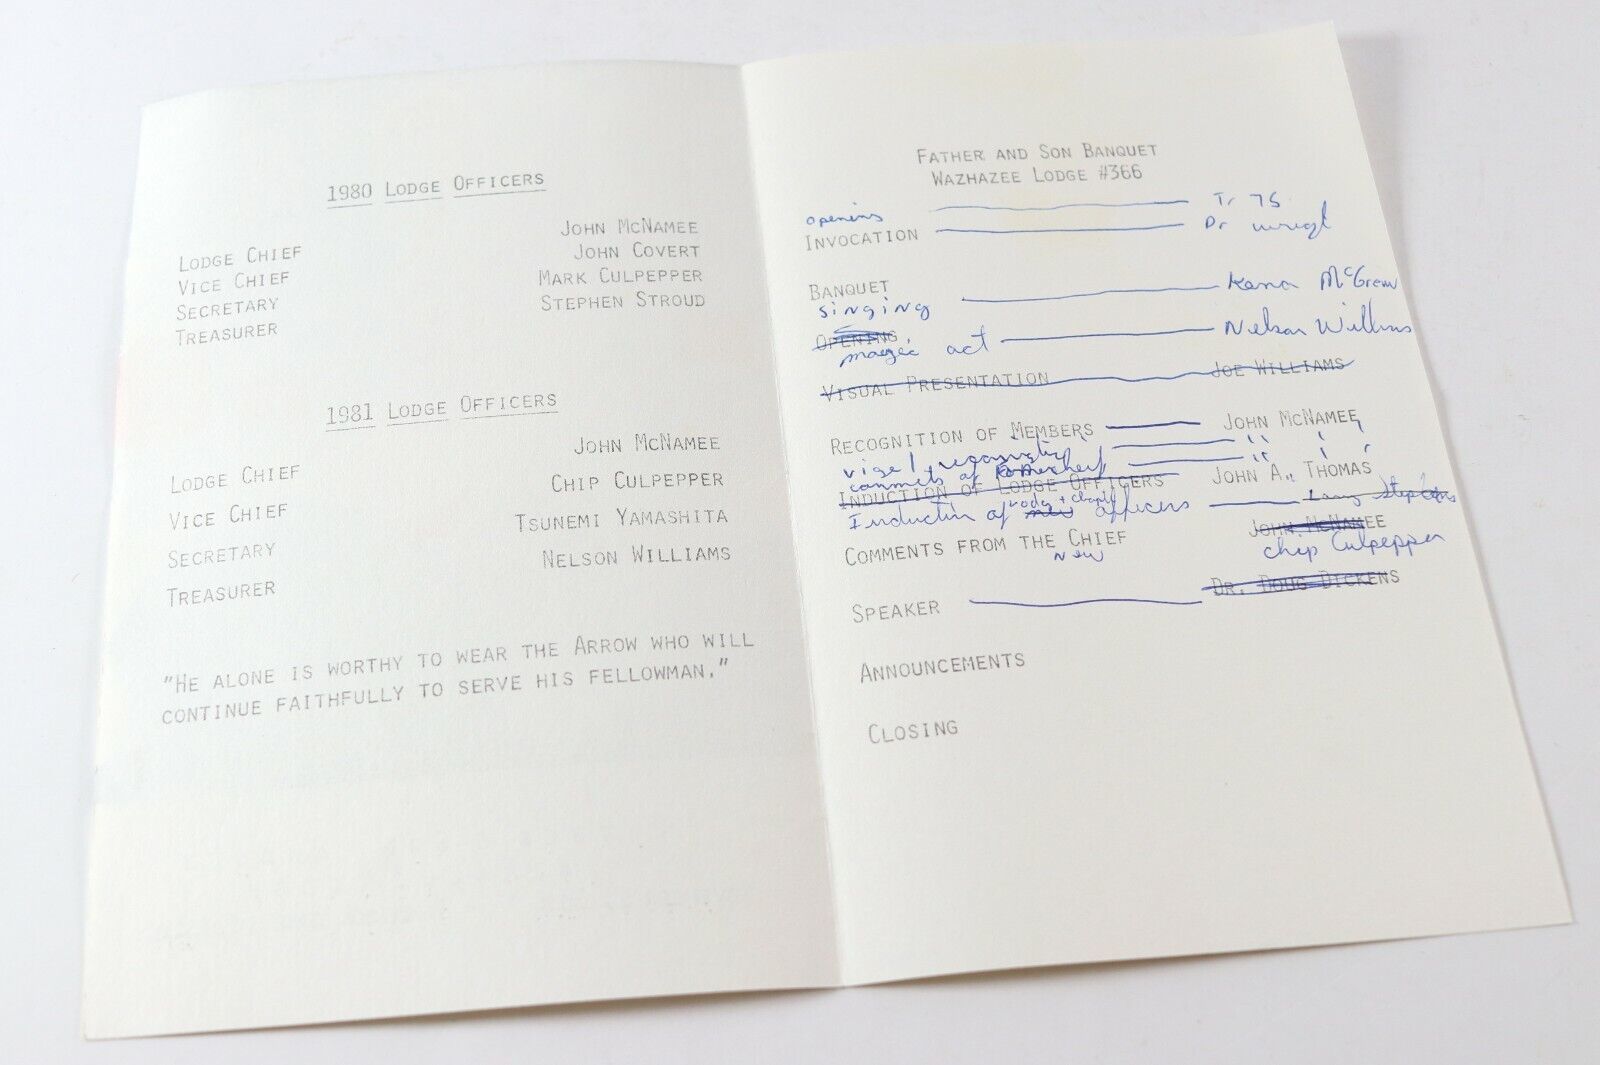 1980 LODGE OFFICERS
LODGE CHIEF JOHN MCNAMEE
VICE CHIEF JOHN COVERT
SECRETARY MARK CULPEPPER
TREASURER STEPHEN STROUD
1981 LODGE OFFICERS
LODGE CHIEF JOHN MCNAMEE
VICE CHIEF CHIP CULPEPPER
SECRETARY TSUNEMI YAMASHITA
TREASURER NELSON WILLIAMS
"HE ALONE IS WORTHY TO WEAR THE ARROW WHO WILL
CONTINUE FAITHFULLY TO SERVE HIS FELLOWMAN."
FATHER AND SON BANQUET
WAZHAZEE LODGE #366
opening Tr 75
INVOCATION Dr
BANQUET
singing McGraw
OPENING
magic act Nelson Williams
VISUAL PRESENTATION JOE WILLIAMS
RECOGNITION OF MEMBERS JOHN MCNAMEE
INDUCTION OF LODGE OFFICERS JOHN A. THOMAS
Induction of officers
COMMENTS FROM THE CHIEF JOHN MCNAMEE
new Chip Culpepper
SPEAKER DR. DOUG DICKENS
ANNOUNCEMENTS
CLOSING